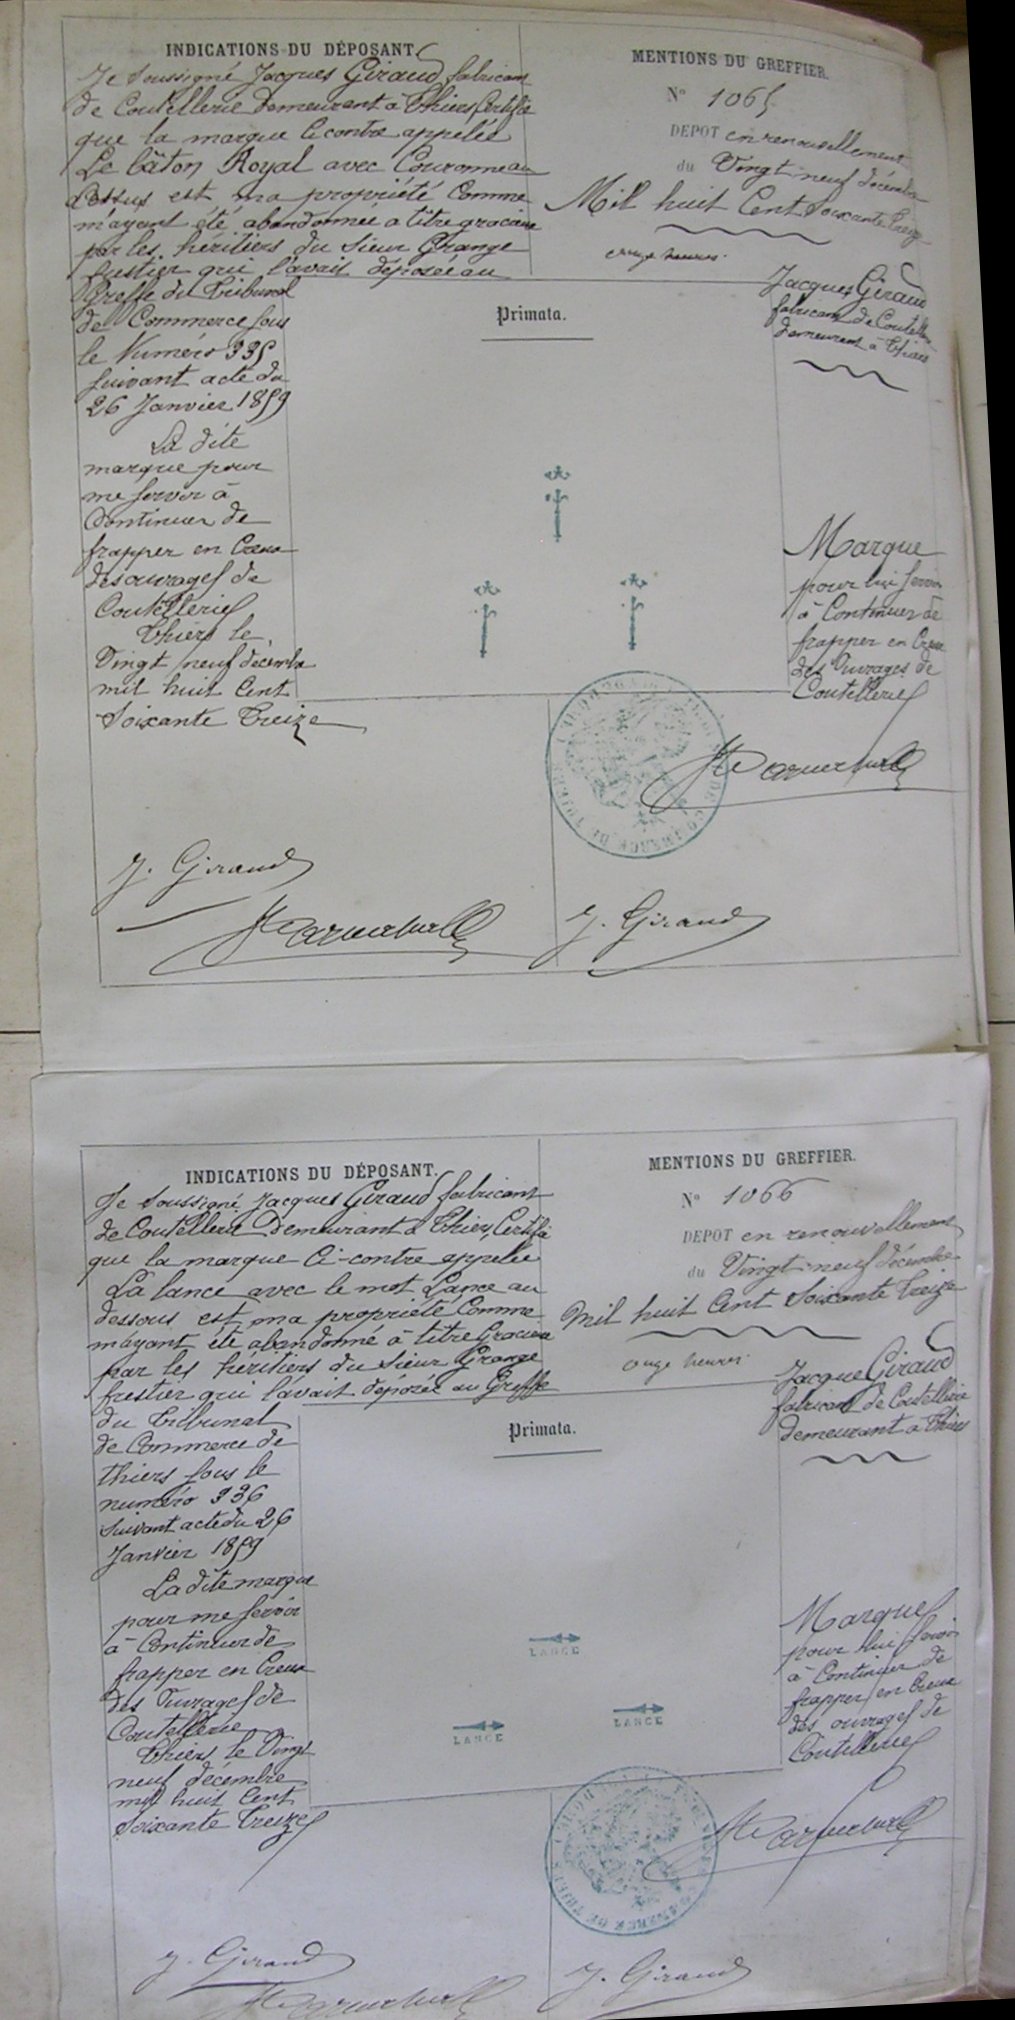 INDICATIONS DU DÉPOSANT.
Je Soussigné Jacques Giraud fabricant
de Coutellerie Demeurant à Thiers Certifie
que la marque Ci contre appelée
Le bâton Royal avec Couronne au
Dessus est ma propriété Comme
m'ayant été abandonnée a titre gracieux
par les héritiers du Sieur Grange
fustier qui l'avait déposée au
Greffe du Tribunal
de Commerce Sous
le Numéro 335
Suivant acte du
26 Janvier 1859
La dite
marque pour
me Servir à
Continuer de
frapper en Creux
des ouvrages de
Coutellerie
Thiers le
Vingt neuf décembre
mil huit Cent
Soixante Treize
J. Giraud
MENTIONS DU GREFFIER.
N° 1065
DEPOT en renouvellement
du Vingt neuf décembre
Mil huit Cent Soixante Treize
onze heures
Jacques Giraud
fabricant de Coutellerie
demeurant à Thiers
Primata.
Marque
pour lui Servir
à Continuer de
frapper en Creux
des Ouvrages de
Coutellerie
J. Giraud
INDICATIONS DU DÉPOSANT.
Je Soussigné Jacques Giraud fabricant
de Coutellerie Demeurant à Thiers, Certifie
que la marque Ci-contre appelée
La lance avec le mot Lance au
dessous est ma propriété Comme
m'ayant été abandonné à titre Gracieux
par les héritiers du Sieur Grange
frestier qui l'avait déposée au Greffe
du Tribunal
de Commerce de
Thiers Sous le
numéro 336
Suivant acte du 26
Janvier 1859
La dite marque
pour me Servir
à Continuer de
frapper en Creux
des Ouvrages de
Coutellerie
Thiers le Vingt
neuf décembre
mil huit Cent
Soixante Treize
J. Giraud
MENTIONS DU GREFFIER.
N° 1066
DEPOT en renouvellement
du Vingt neuf décembre
Mil huit Cent Soixante Treize
onze heures
Jacques Giraud
fabricant de Coutellerie
demeurant à Thiers
Primata.
LANCE
LANCE
LANCE
Marque
pour lui Servir
à Continuer de
frapper en Creux
des ouvrages de
Coutellerie
J. Giraud